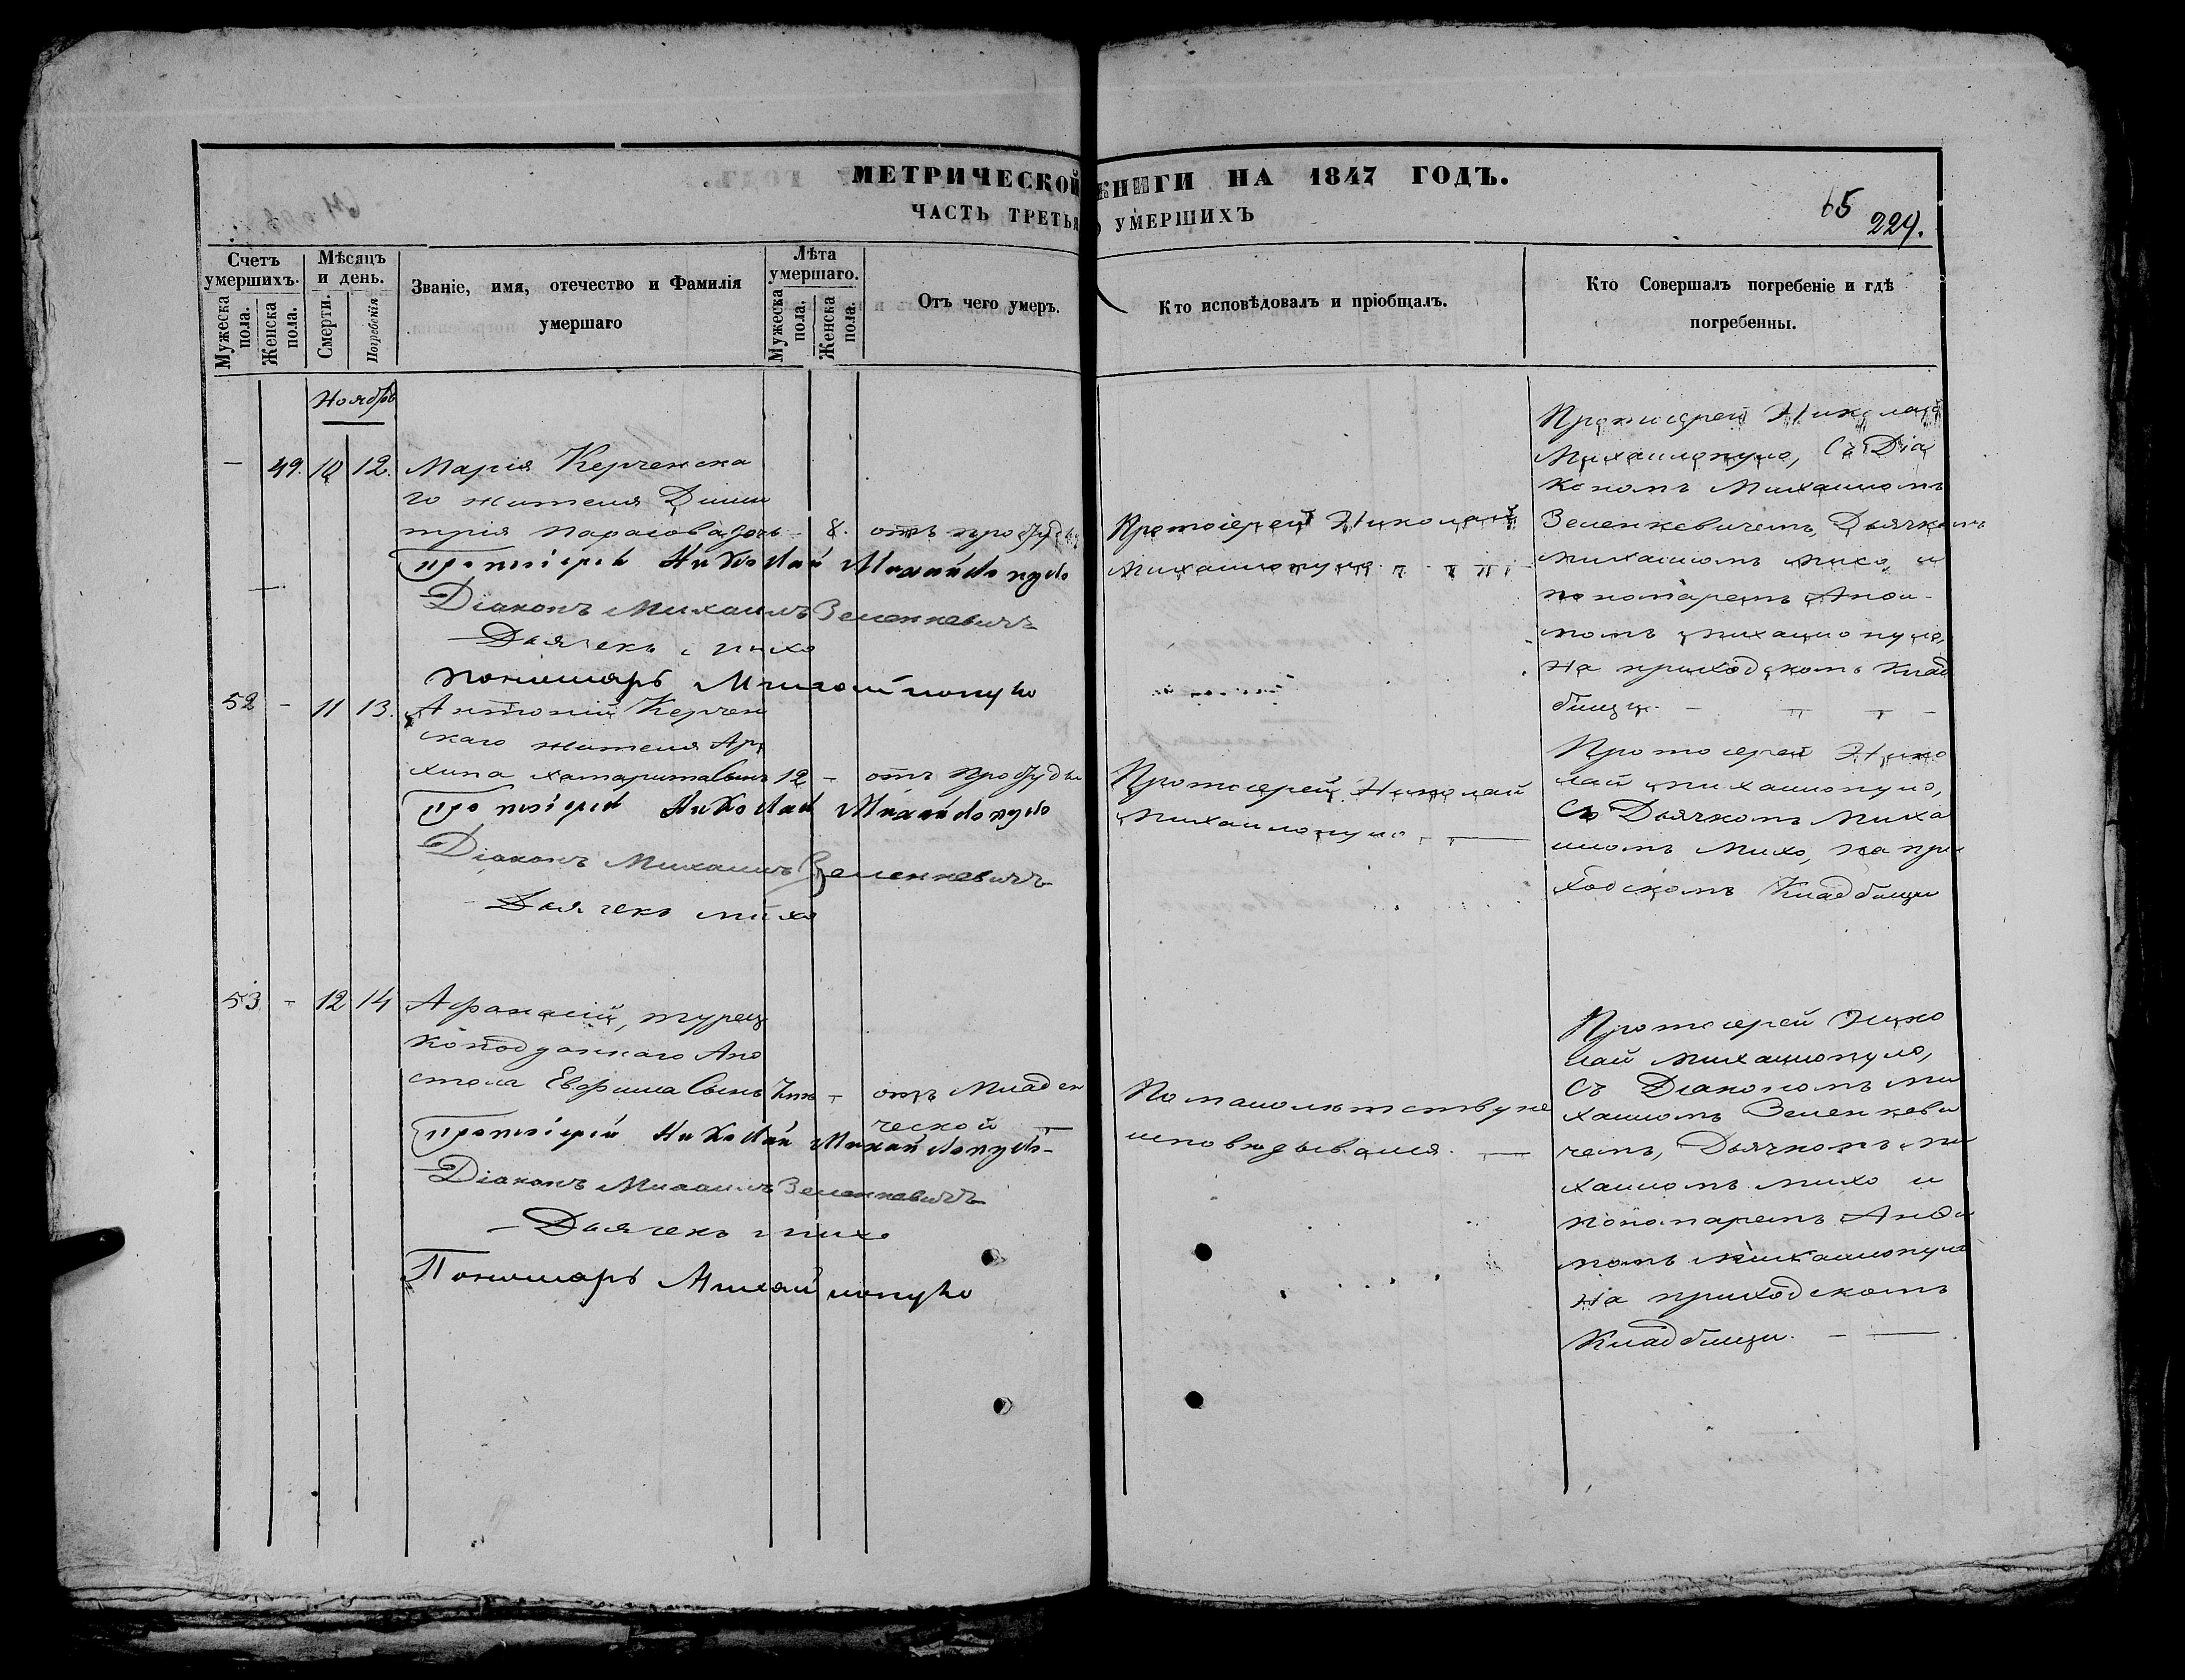 МЕТРИЧЕСКОЙ КНИГИ НА 1847 ГОДЪ.
ЧАСТЬ ТРЕТЬЯ О УМЕРШИХЪ
65
229.
Счетъ умершихъ.
Мужеска пола.
Женска пола.
Мѣсяцъ и день.
Смерти.
Погребенія
Званіе, имя, отечество и Фамилія
умершаго
Лѣта умершаго.
Мужеска пола.
Женска пола.
Отъ чего умеръ.
Кто исповѣдовалъ и пріобщалъ.
Кто Совершалъ погребеніе и гдѣ
погребенны.
Ноябрь
— 49. 10 12. Марія Керченска
го жителя Дими
трія 8. отъ простуды
Протоіерей Николай Михайлопуло
Діаконъ Михаилъ Зеленкевичъ
Дьячекъ Михо
Пономарь Михайлопуло
Протоіерей Николай
Михаилопуло
Протоиерей Николай
Михаилопуло, Съ Діа
кономъ Михаиломъ
Зеленкевичемъ, Дьячкомъ
Михаиломъ Михо, и
пономаремъ
Михаилопуло,
на приходскомъ клад
бищи.
52 - 11 13. Антоній Керчен
скаго жителя Ар
хипа Сынъ 12 - отъ простуды
Протоіерей Николай Михайлопуло
Діаконъ Михаилъ Зеленкевичъ
Дьячекъ Михо
Протоиерей Николай
Михаилопуло
Протоиерей Нико
лай Михаилопуло,
Съ Дьячкомъ Миха
иломъ Михо, на при
ходскомъ Кладбищи
53 - 12 14 Афанасій, турец
коподданнаго Апо
стола Евфима Сынъ - отъ Младен
ческой
Протоіерей Николай Михайлопуло
Діаконъ Михаилъ Зеленкевичъ
Дьячекъ Михо
Пономарь Михайлопуло
По малолѣтству не
исповѣдывался.
Протоиерей Нико
лай Михаилопуло,
Съ Діакономъ Ми
хаиломъ Зеленкеви
чемъ, Дьячкомъ Ми
хаиломъ Михо и
пономаремъ
Михаилопуло
на приходскомъ
Кладбищи.